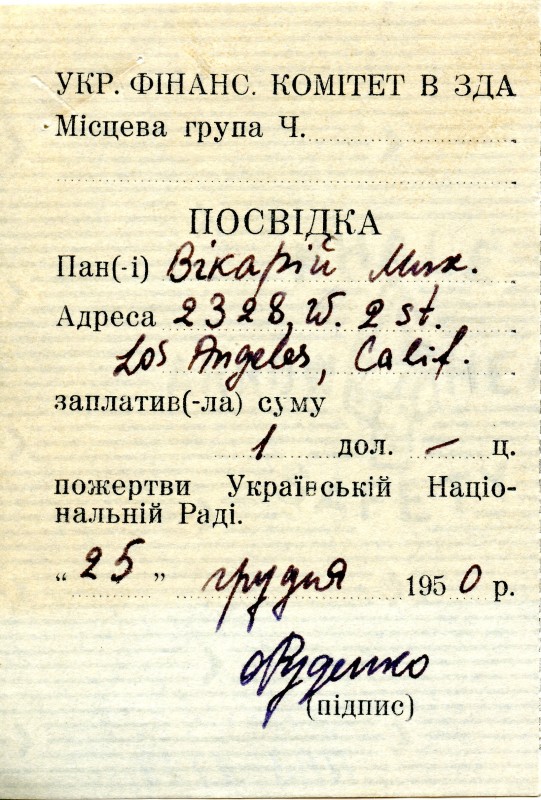 УКР. ФІНАНС. КОМІТЕТ В ЗДА
Місцева група Ч.
ПОСВІДКА
Пан(-і) Вікарій Мих.
Адреса 2328, W. 2 st.
Los Angeles, Calif.
заплатив(-ла) суму
1 дол. — ц.
пожертви Українській Націо-
нальній Раді.
„ 25 " грудня 1950 р.
Руденко
(підпис)